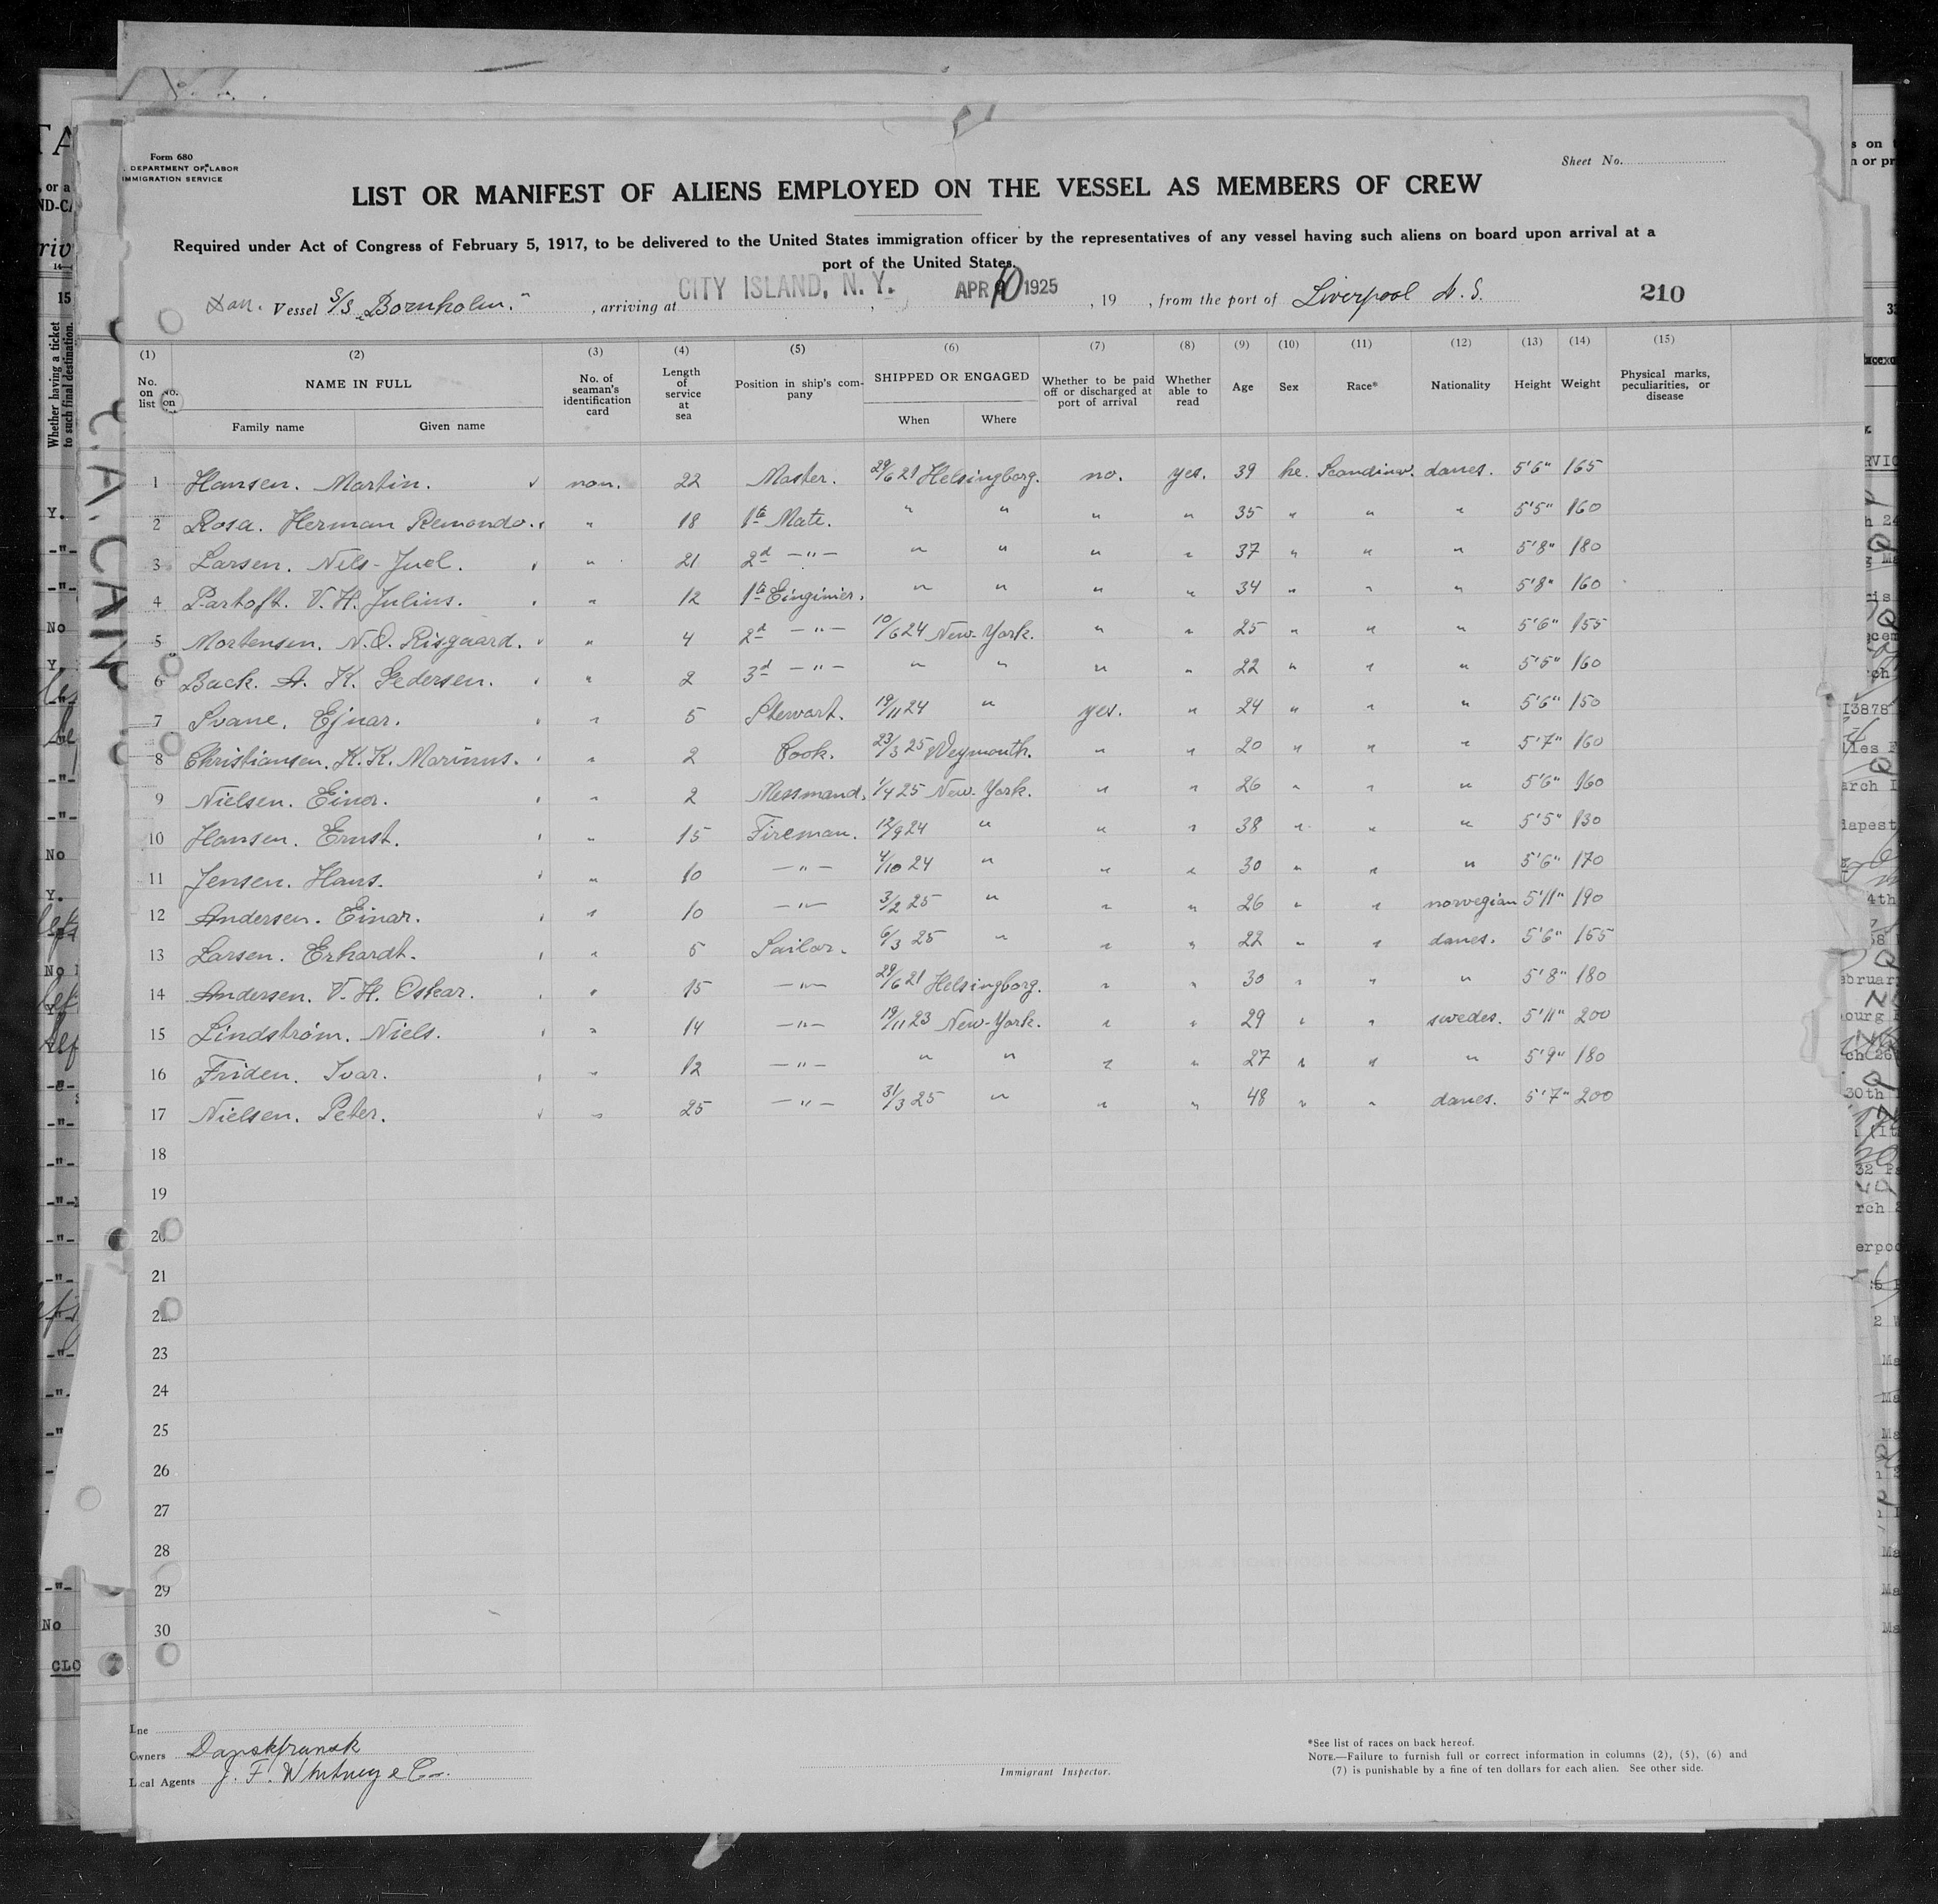 Form 680
DEPARTMENT OF LABOR
IMMIGRATION SERVICE
Sheet No.
LIST OR MANIFEST OF ALIENS EMPLOYED ON THE VESSEL AS MEMBERS OF CREW
Required under Act of Congress of February 5, 1917, to be delivered to the United States immigration officer by the representatives of any vessel having such aliens on board upon arrival at a
port of the United States.
Dan. Vessel S/S „Bornholm." , arriving at CITY ISLAND, N. Y. , APR 10 1925 , 19 , from the port of Liverpool N. S. 210
(1) (2) (3) (4) (5) (6) (7) (8) (9) (10) (11) (12) (13) (14) (15)
No. on list NAME IN FULL Family name Given name No. of seaman's identification card Length of service at sea Position in ship's company SHIPPED OR ENGAGED When Where Whether to be paid off or discharged at port of arrival Whether able to read Age Sex Race* Nationality Height Weight Physical marks, peculiarities, or disease
1 Hansen. Martin. non. 22 Master. 29/6 21 Helsingborg. no. yes. 39 he. Scandinav. danes. 5'6" 165
2 Rosa. Herman Remondo. " 18 1te Mate. " " " " 35 " " " 5'5" 160
3 Larsen. Nils-Juel. " 21 2d —"— " " " " 37 " " " 5'8" 180
4 Parhoft. V. H. Julius. " 12 1te Einginier. " " " " 34 " " " 5'8" 160
5 Mortensen. N. O. Risgaard. " 4 2d —"— 10/6 24 New-York. " " 25 " " " 5'6" 155
6 Back. A. K. Pedersen. " 2 3d —"— " " " " 22 " " " 5'5" 160
7 Svane. Ejnar. " 5 Stewart. 19/11 24 " yes. " 24 " " " 5'6" 150
8 Christiansen. K. K. Marinus. " 2 Cook. 23/3 25 Weymouth. " " 20 " " " 5'7" 160
9 Nielsen. Einar. " 2 Messmand. 1/4 25 New-York. " " 26 " " " 5'6" 160
10 Hansen. Ernst. " 15 Fireman. 12/9 24 " " " 38 " " " 5'5" 130
11 Jensen. Hans. " 10 —"— 4/10 24 " " " 30 " " " 5'6" 170
12 Andersen. Einar. " 10 —"— 3/2 25 " " " 26 " " norwegian 5'11" 190
13 Larsen. Erhardt. " 5 Sailor. 6/3 25 " " " 22 " " danes. 5'6" 155
14 Andersen. V. H. Oskar. " 15 —"— 29/6 21 Helsingborg. " " 30 " " " 5'8" 180
15 Lindstrøm. Niels. " 14 —"— 19/11 23 New-York. " " 29 " " swedes. 5'11" 200
16 Friden. Ivar. " 12 —"— " " " " 27 " " " 5'9" 180
17 Nielsen. Peter. " 25 —"— 31/3 25 " " " 48 " " danes. 5'7" 200
18
19
20
21
22
23
24
25
26
27
28
29
30
Line
Owners Danskfransk
Local Agents J. F. Whitney & Co.
Immigrant Inspector.
*See list of races on back hereof.
NOTE.—Failure to furnish full or correct information in columns (2), (5), (6) and
(7) is punishable by a fine of ten dollars for each alien. See other side.